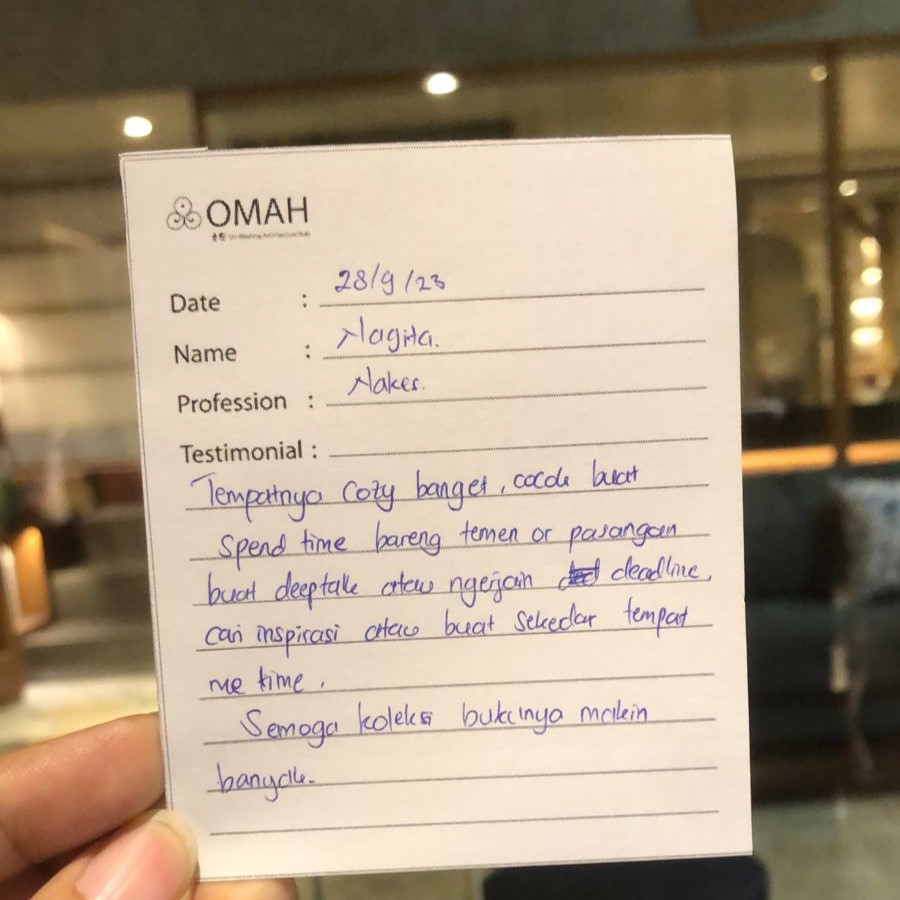 OMAH
Date : 28/9/23
Name : Nagita.
Profession : Nakes.
Testimonial :
Tempatnya cozy banget, cocok buat
spend time bareng temen or pasangan
buat deeptalk atau ngerjain deadline,
cari inspirasi atau buat sekedar tempat
me time.
Semoga koleksi bukunya makin
banyak.